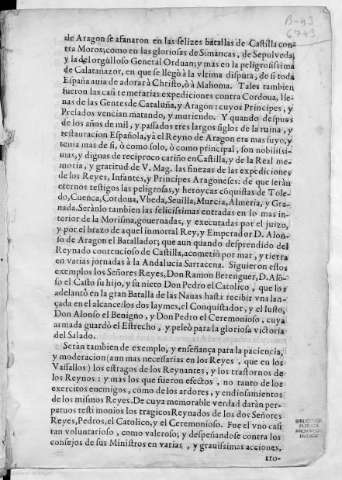 de Aragon se afanaron en las felizes batallas de Castilla con-
tra Moros; como en las gloriosas de Simancas, de Sepulveda,
y la del orgulloso General Orduan; y mas en la peligrosissima
de Calatañazor, en que se llegò à la vltima disputa, de si toda
España auia de adorar à Christo, ò à Mahoma. Tales tambien
fueron las casi temerarias expediciones contra Cordoua, lle-
nas de las Gentes de Cataluña, y Aragon: cuyos Principes, y
Prelados vencian matando, y muriendo. Y quando despues
de los años de mil, y passados tres largos siglos de la ruina, y
restauracion Española, yà el Reyno de Aragon era mas suyo, y
tenia mas de si, ò como solo, ò como principal, son nobilissi-
mas, y dignas de reciproco cariño en Castilla, y de la Real me-
moria, y gratitud de V. Mag. las finezas de las expediciones
de los Reyes, Infantes, y Principes Aragoneses: de que seràn
eternos testigos las peligrosas, y heroycas cõquistas de Tole-
do, Cuenca, Cordoua, Vbeda, Seuilla, Murcia, Almeria, y Gra-
nada. Serànlo tambien las felicissimas entradas en lo mas in-
terior de la Morisma, gouernadas, y executadas por el juizo,
y por el brazo de aquel inmortal Rey, y Emperador D. Alon-
so de Aragon el Batallador; que aun quando desprendido del
Reynado contencioso de Castilla, acometiò por mar, y tierra
en varias jornadas à la Andalucia Sarracena. Siguieron estos
exemplos los Señores Reyes, Don Ramon Berenguer, D. Alõ-
so el Casto su hijo, y su nieto Don Pedro el Catolico, que los
adelantò en la gran Batalla de las Nauas hasta recibir vna lan-
çada en el alcance: los dos Iaymes, el Conquistador, y el Iusto,
Don Alonso el Benigno, y Don Pedro el Ceremonioso, cuya
armada guardò el Estrecho, y peleò para la gloriosa victoria
del Salado.
Seràn tambien de exemplo, y enseñança para la paciencia,
y moderacion (aun mas necessarias en los Reyes, que en los
Vasallos) los estragos de los Reynantes, y los trastornos de
los Reynos: y mas los que fueron efectos, no tanto de los
exercitos enemigos, como de los ardores, y endiosamientos
de los mismos Reyes. De cuya memorable verdad daràn per-
petuos testimonios los tragicos Reynados de los dos Señores
Reyes, Pedros, el Catolico, y el Ceremonioso. Fue el vno casi
tan voluntarioso, como valeroso; y despeñandose contra los
consejos de sus Ministros en varias, y grauissimas acciones,